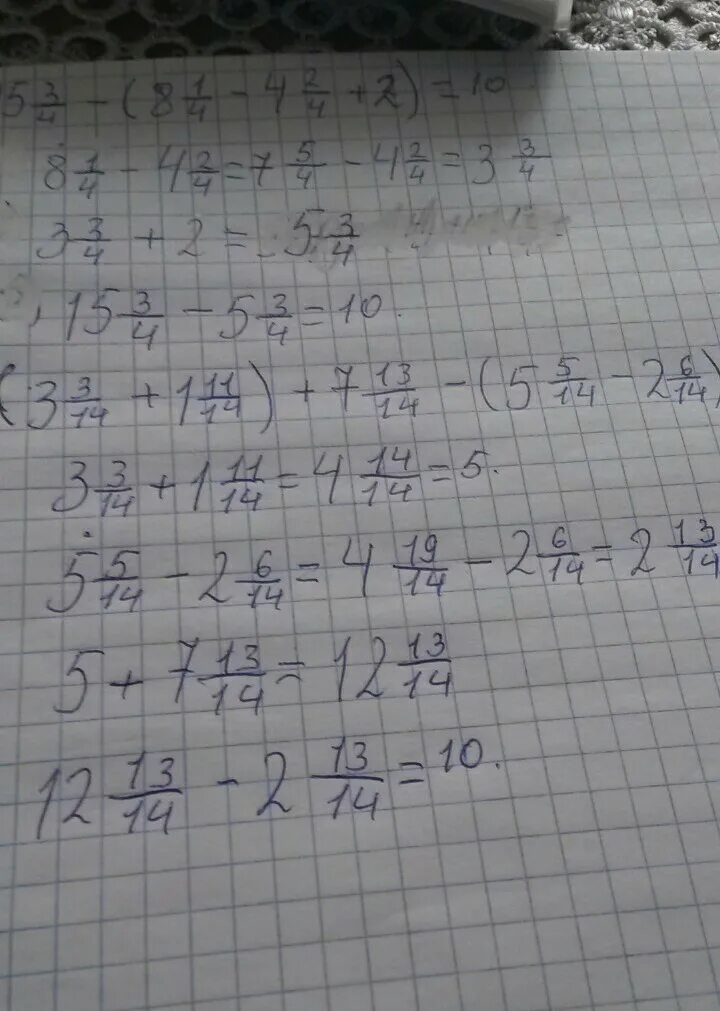 5 3/4 - (8 1/4 - 4 2/4 + 2) = 10
8 1/4 - 4 2/4 = 7 5/4 - 4 2/4 = 3 3/4
3 3/4 + 2 = 5 3/4
15 3/4 - 5 3/4 = 10.
(3 3/14 + 1 11/14) + 7 13/14 - (5 5/14 - 2 6/14)
3 3/14 + 1 11/14 = 4 14/14 = 5.
5 5/14 - 2 6/14 = 4 19/14 - 2 6/14 = 2 13/14
5 + 7 13/14 = 12 13/14
12 13/14 - 2 13/14 = 10.